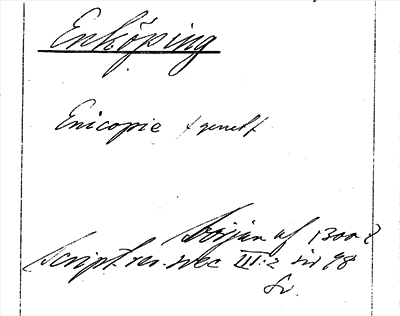 Enköping
Enicopie
början af 1300 t
Script. rer. svec III:2 sid 98